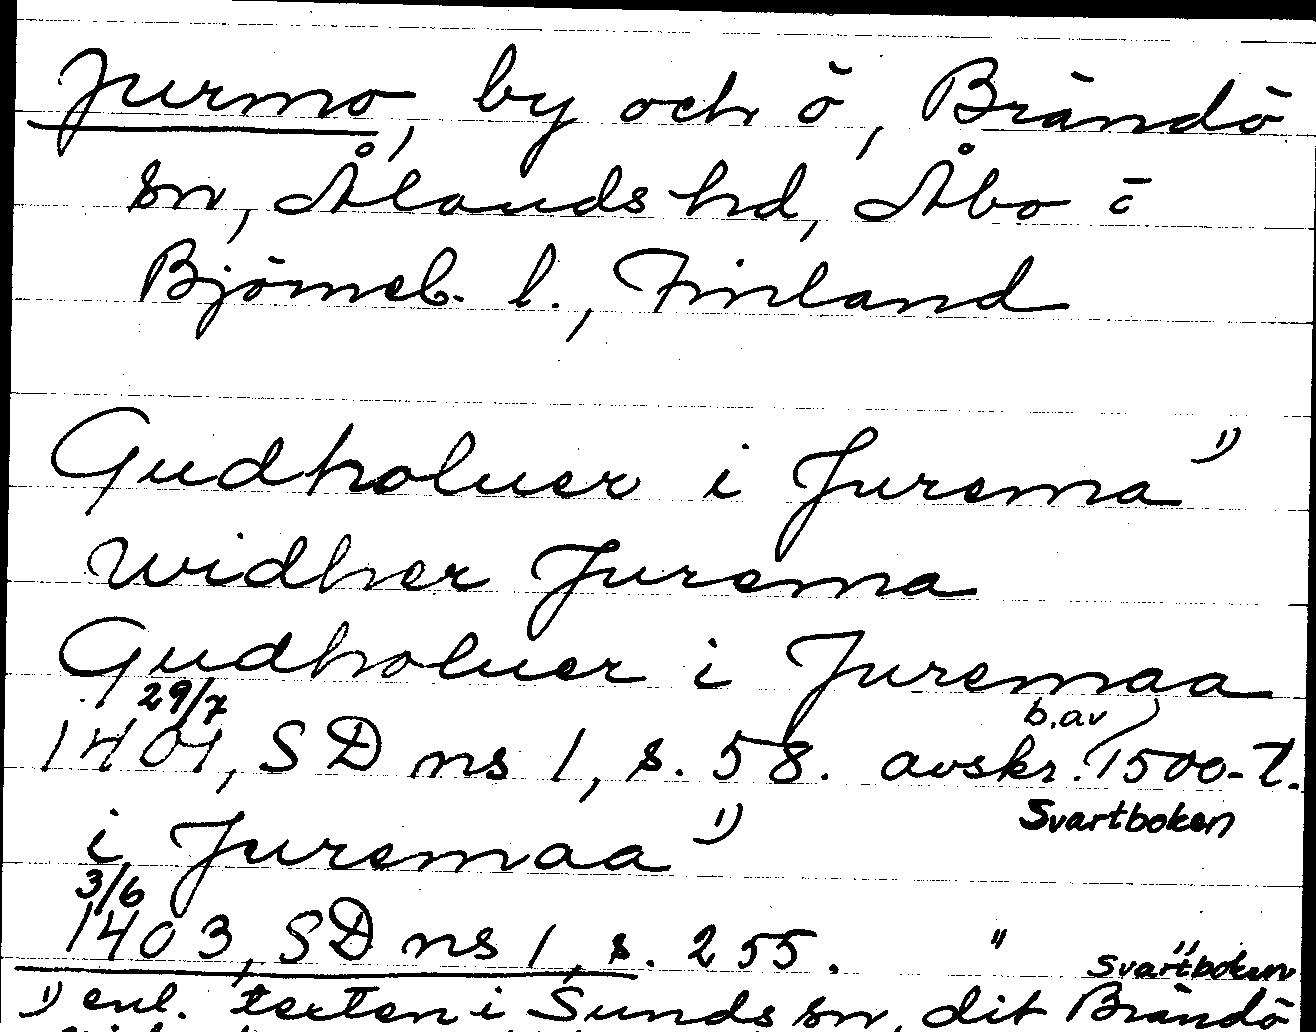 Jurmo, by och ö, Brändö
sn, Ålands hd, Åbo o
Björneb. l., Finland
Gudholuer i Jurema 1)
widher Jurema
Gudholuer i Juremaa
29/7 b. av
1401, SD ns 1, s. 58. avskr. 1500-t.
Svartboken
i Juremaa 1)
3/6
1403, SD ns 1, s. 255. " Svartboken
1) enl. texten i Sunds sn, dit Brändö